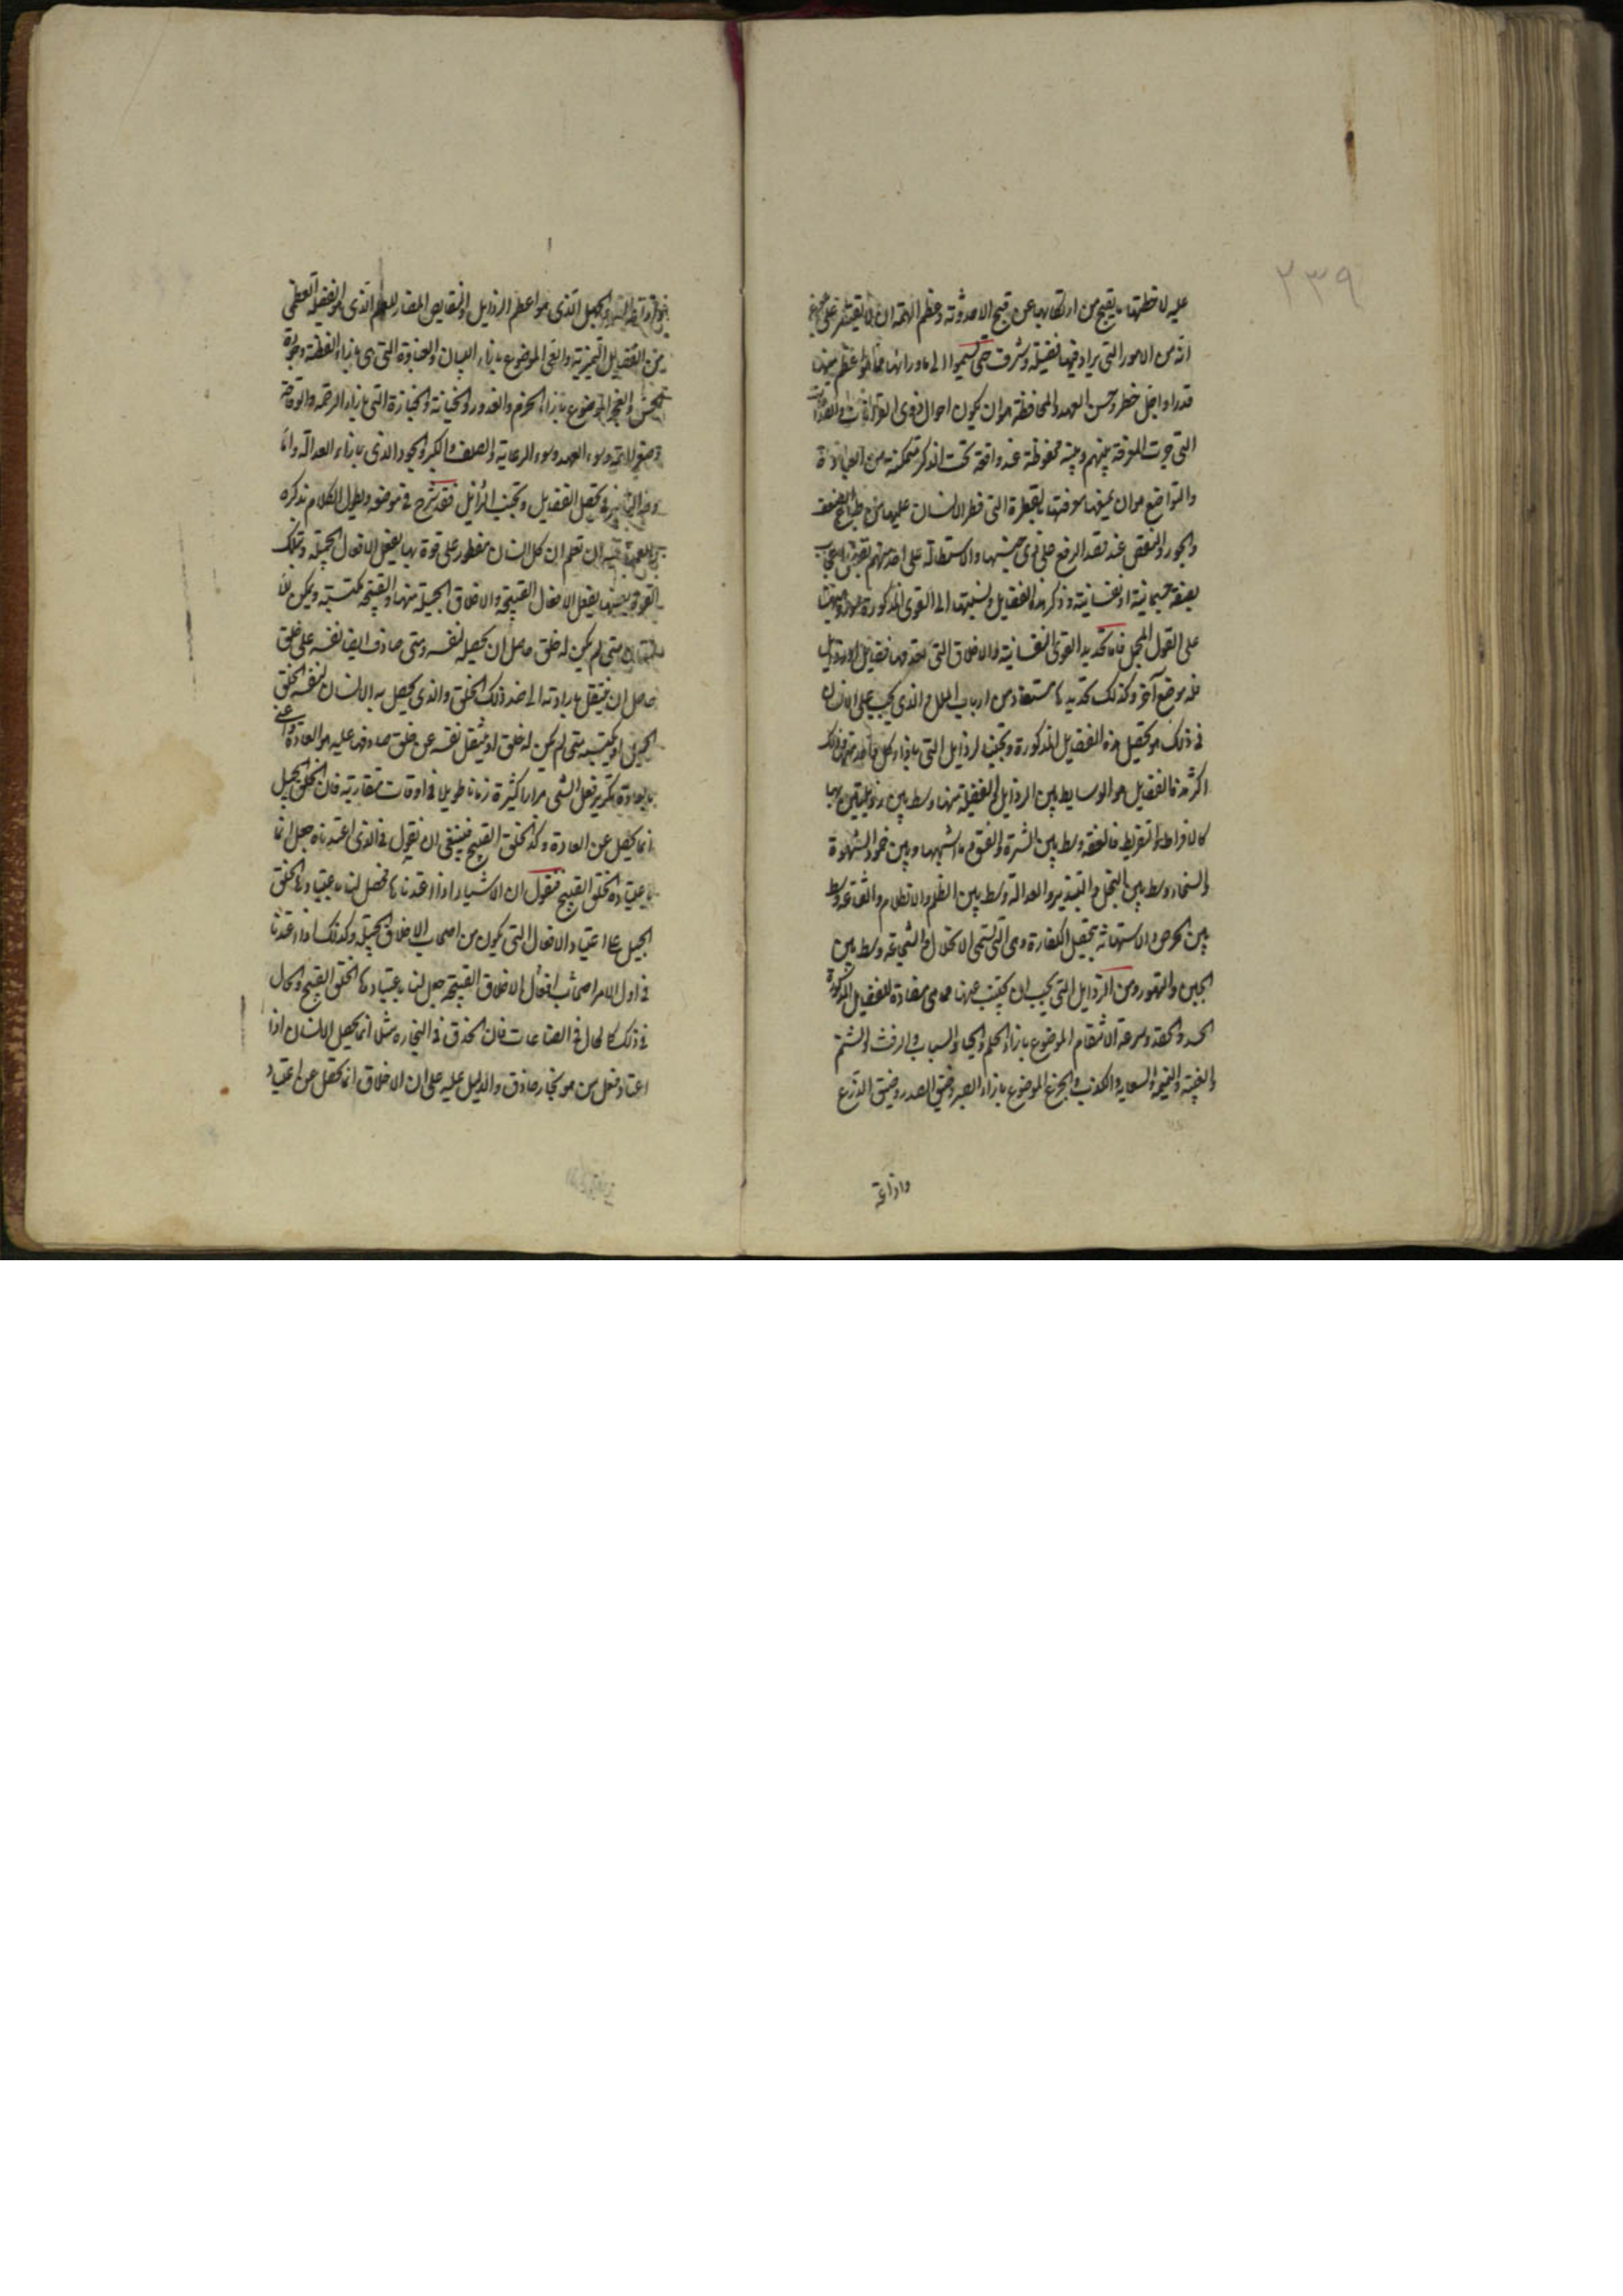 ٢٣٩
عليه لا خطرتها ما يقبح من ارتكابها عن قبح الاحدوثة وعظم الهمة ان لا يقتصر على بلوغ
انه من الامور التي يراد فيها فضيلة وشرف حتى يسموا الى ما ورائها مما هو عظم منها
قدرا واجل خطر وحسن العهد والمحافظة هو ان يكون احوال ذوى القرابات والصداقات
التي جرت المعرفة بينهم وبينه محفوظة عنده واقعة تحت التذكر متمكنة من العناية
والتواضع هو ان يمنعها معرفتها بالفطرة التي فطر الانسان عليها من طبائع الضعف
والجور والنقص عند قصد الرفع على ذوى جنسها والاستطالة على احد منهم
بصفة جسمانية او نفسانية وذكر هذه الفضايل ونسبتها الى القوى المذكورة
على القول المجمل فاما تحديد القوى النفسانية والاخلاق التي تعد منها فضايل او رذايل
فله موضع آخر وكذلك تحديدها مستفاد من ارباب الملل والذي يجب على الانسان
في ذلك هو تحصيل هذه الفضايل المذكورة وتجنب الرذايل التي بازاء كل واحد منها وذلك
اكثر هذه الفضايل هو الوسايط بين الرذايل والفضيلة منها وسط بين رذيلتين هما
كالافراط والتفريط فالعفة وسط بين الشره والفتوم ما اشبهها وبين خمود الشهوة
والسخاء وسط بين البخل والتبذير والعدالة وسط بين الظلم والانظلام والقناعة وسط
بين الحرص والاستهانة بتحصيل الكفاية وهي التي تسمى الانحلال والشجاعة وسط بين
الجبن والتهور ومن الرذايل التي يجب ان يجتنب عنها مما هي مضادة للفضايل المذكورة
الحسد والحقد وسرعة الانتقام الموضوع بازاء الحلم والحياء والسباب والرفث والشتم
والغيبة والنميمة والسعاية والكذب والجزع الموضوع بازاء الصبر وضيق الصدر وضيق الذرع
واذاعة
والجهل الذي هو اعظم الرذايل والنقايص المضاد للعلم الذي هو الفضيلة العظمى
من الفضايل التميزية والعي الموضوع بازاء البيان والغباوة التي هي بازاء الفطنة وجودة
الحدس والعجز الموضوع بازاء الحزم والغدر والخيانة التي بازاء الرحمة والوقاحة
وصغر الهمة وسوء العهد وسوء الرعاية والصلف والكبر والجور الذي بازاء العدالة واما
وجه التدبير في تحصيل الفضايل وتجنب الرذايل فقد شرح في موضعه ويطول الكلام بذكره
ان تعلم ان كل انسان مفطور على قوة بها يفعل الافعال الجميلة وتلك
القوة بعينها يفعل الافعال القبيحة والاخلاق الجميلة منها والقبيحة مكتسبة ويمكن
للانسان متى لم يكن له خلق حاصل ان يحصله لنفسه ومتى صادف ايضا نفسه على خلق
حاصل ان ينتقل بارادته الى ضد ذلك الخلق والذي يحصل به الانسان لنفسه الخلق
الجميل او يكتسبه متى لم يكن له خلق او ينتقل نفسه عن خلق صادفها عليه هو العادة واعنى
بالعادة تكرير فعل الشي مرارا كثيرة زمانا طويلا في اوقات متقاربة فان الخلق الجميل
انما يحصل عن العادة وكذا الخلق القبيح فينبغي ان نقول في الذي اعتدناه حصل انما
باعتياده الخلق القبيح فنقول ان الاشياء اذا اعتدناها حصل لنا باعتيادها الخلق
الجميل هي اعتياد الافعال التي يكون من اصحاب الاخلاق الجميلة وكذلك اذا اعتدنا
في اول الامر اصحاب افعال الاخلاق القبيحة حصل لنا باعتيادها الخلق القبيح والحال
في ذلك كالحال في الصناعات فان الحذق في النجارة مثلا انما يحصل للانسان اذا
اعتاد فعل من هو نجار حاذق والدليل عليه على ان الاخلاق انما تحصل عن اعتياد